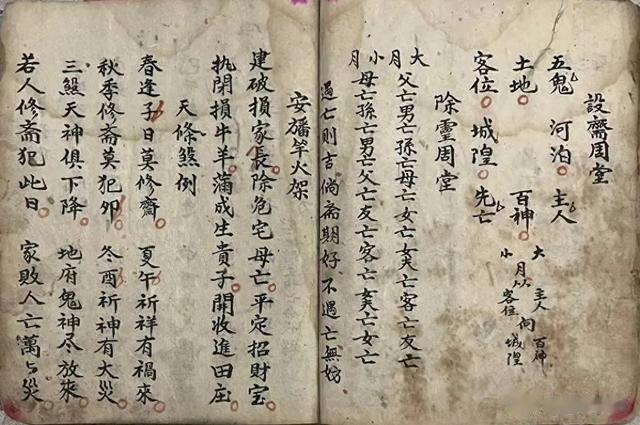 設齋周堂
五鬼 河泊 主人
土地 百神
客位 城隍 先亡
大月以主人向百神
小 客位 城隍
除靈周堂
大月父亡男亡孫亡母亡女亡亡客亡友亡
小月母亡孫亡男亡父亡友亡客亡亡女亡
遇亡則吉倘齋期好不遇亡無妨
安旛竿火架
建破損家長除危宅母亡平定招財宝
执閉損牛羊滿成生貴子開收進田庄
天條煞例
春逢子日莫修齋 夏午祈祥有禍來
秋季修斋莫犯卯 冬酉祈神有大災
三煞天神俱下降 地府鬼神尽放來
若人修斋犯此日 家敗人亡萬々災